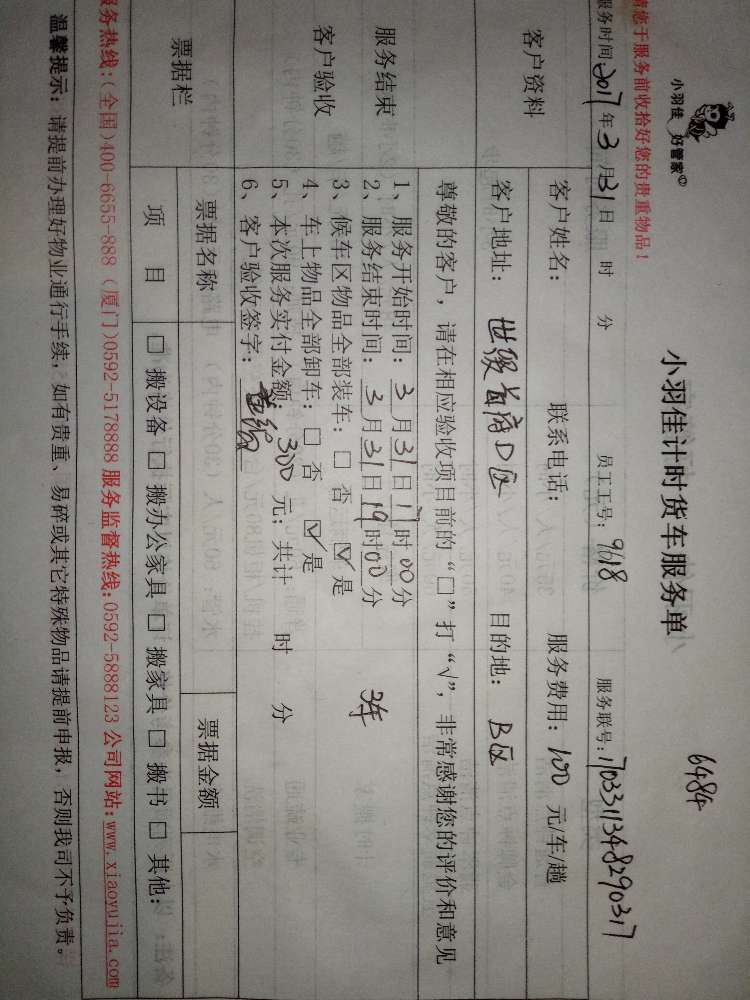 小羽佳 好管家
小羽佳计时货车服务单
6484
请您于服务前收拾好您的贵重物品！
服务时间:2017年3月31日 时 分 员工工号: 9618 服务联号:1703311348290317
客户资料
客户姓名: 联系电话: 服务费用: 100 元/车/趟
客户地址: 世缑首府D区 目的地: B区
尊敬的客户, 请在相应验收项目前的“□”打“√”, 非常感谢您的评价和意见
服务结束
客户验收
1、服务开始时间: 3月31日17时00分
2、服务结束时间: 3月31日19时00分 3车
3、候车区物品全部装车: □ 否 ☑ 是
4、车上物品全部卸车: □ 否 ☑ 是
5、本次服务实付金额: 300 元; 共计 时 分
6、客户验收签字:
票据栏
票据名称 票据金额
项 目 □ 搬设备 □ 搬办公家具 □ 搬家具 □ 搬书 □ 其他:
服务热线:(全国)400-6655-888 (厦门)0592-5178888 服务监督热线:0592-5888123 公司网站:www.xiaoyujia.com
温馨提示: 请提前办理好物业通行手续, 如有贵重、易碎或其它特殊物品请提前申报, 否则我司不予负责。